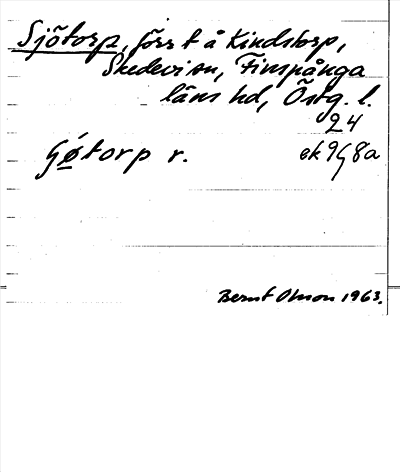 Sjötorp, förs t å Kindstorp,
Skedevi sn, Finspånga
läns hd, Östg. l.
24
Gøtorp r. ek 9G8a
Bernt Olsson 1963.